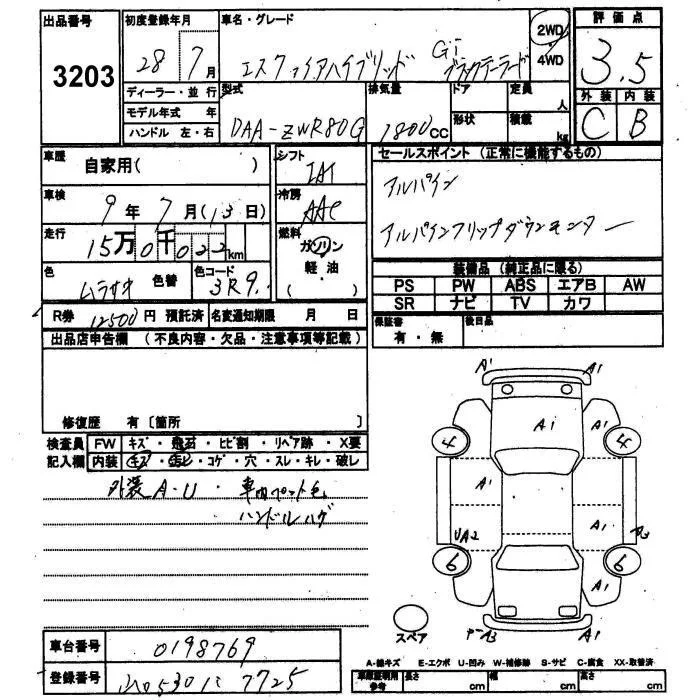 出品番号
3203
初度登録年月
28 7月
ディーラー・並行
モデル年式 年
ハンドル 左・右
車名・グレード
エスクァイアハイブリッド Gi ブラックテーラード
2WD
4WD
型式
DAA-ZWR80G
排気量
1800CC
ドア
形状
定員
人
積載
kg
評価点
3.5
外装 内装
C B
車歴
自家用( )
車検
9年7月(13日)
走行
15万0千022km
色
ムラサキ
色替
色コード
3R9
シフト
IAT
冷房
AAC
燃料
ガソリン
軽油
( )
セールスポイント (正常に機能するもの)
アルパイン
アルパインフリップダウンモニター
装備品 (純正品に限る)
PS PW ABS エアB AW
SR ナビ TV カワ
保証書
有・無
後日品
R券 12500円 預託済 名変通知期限 月 日
出品店申告欄 (不良内容・欠品・注意事項等記載)
修復歴 有 [箇所 ]
検査員 FW キズ・飛石・ヒビ割・リペア跡・X要
記入欄 内装 キズ・汚レ・コゲ・穴・スレ・キレ・破レ
外装A-U・車内ペット毛
ハンドルハゲ
A1 A1
A1
4 4
A1
A1
UA2
6 6
A1
A3 A1
スペア
車台番号
0198769
登録番号
530 7725
A-線キズ E-エクボ U-凹み W-補修跡 S-サビ C-腐食 XX-取替済
車庫証明用参考 長さ cm 幅 cm 高さ cm